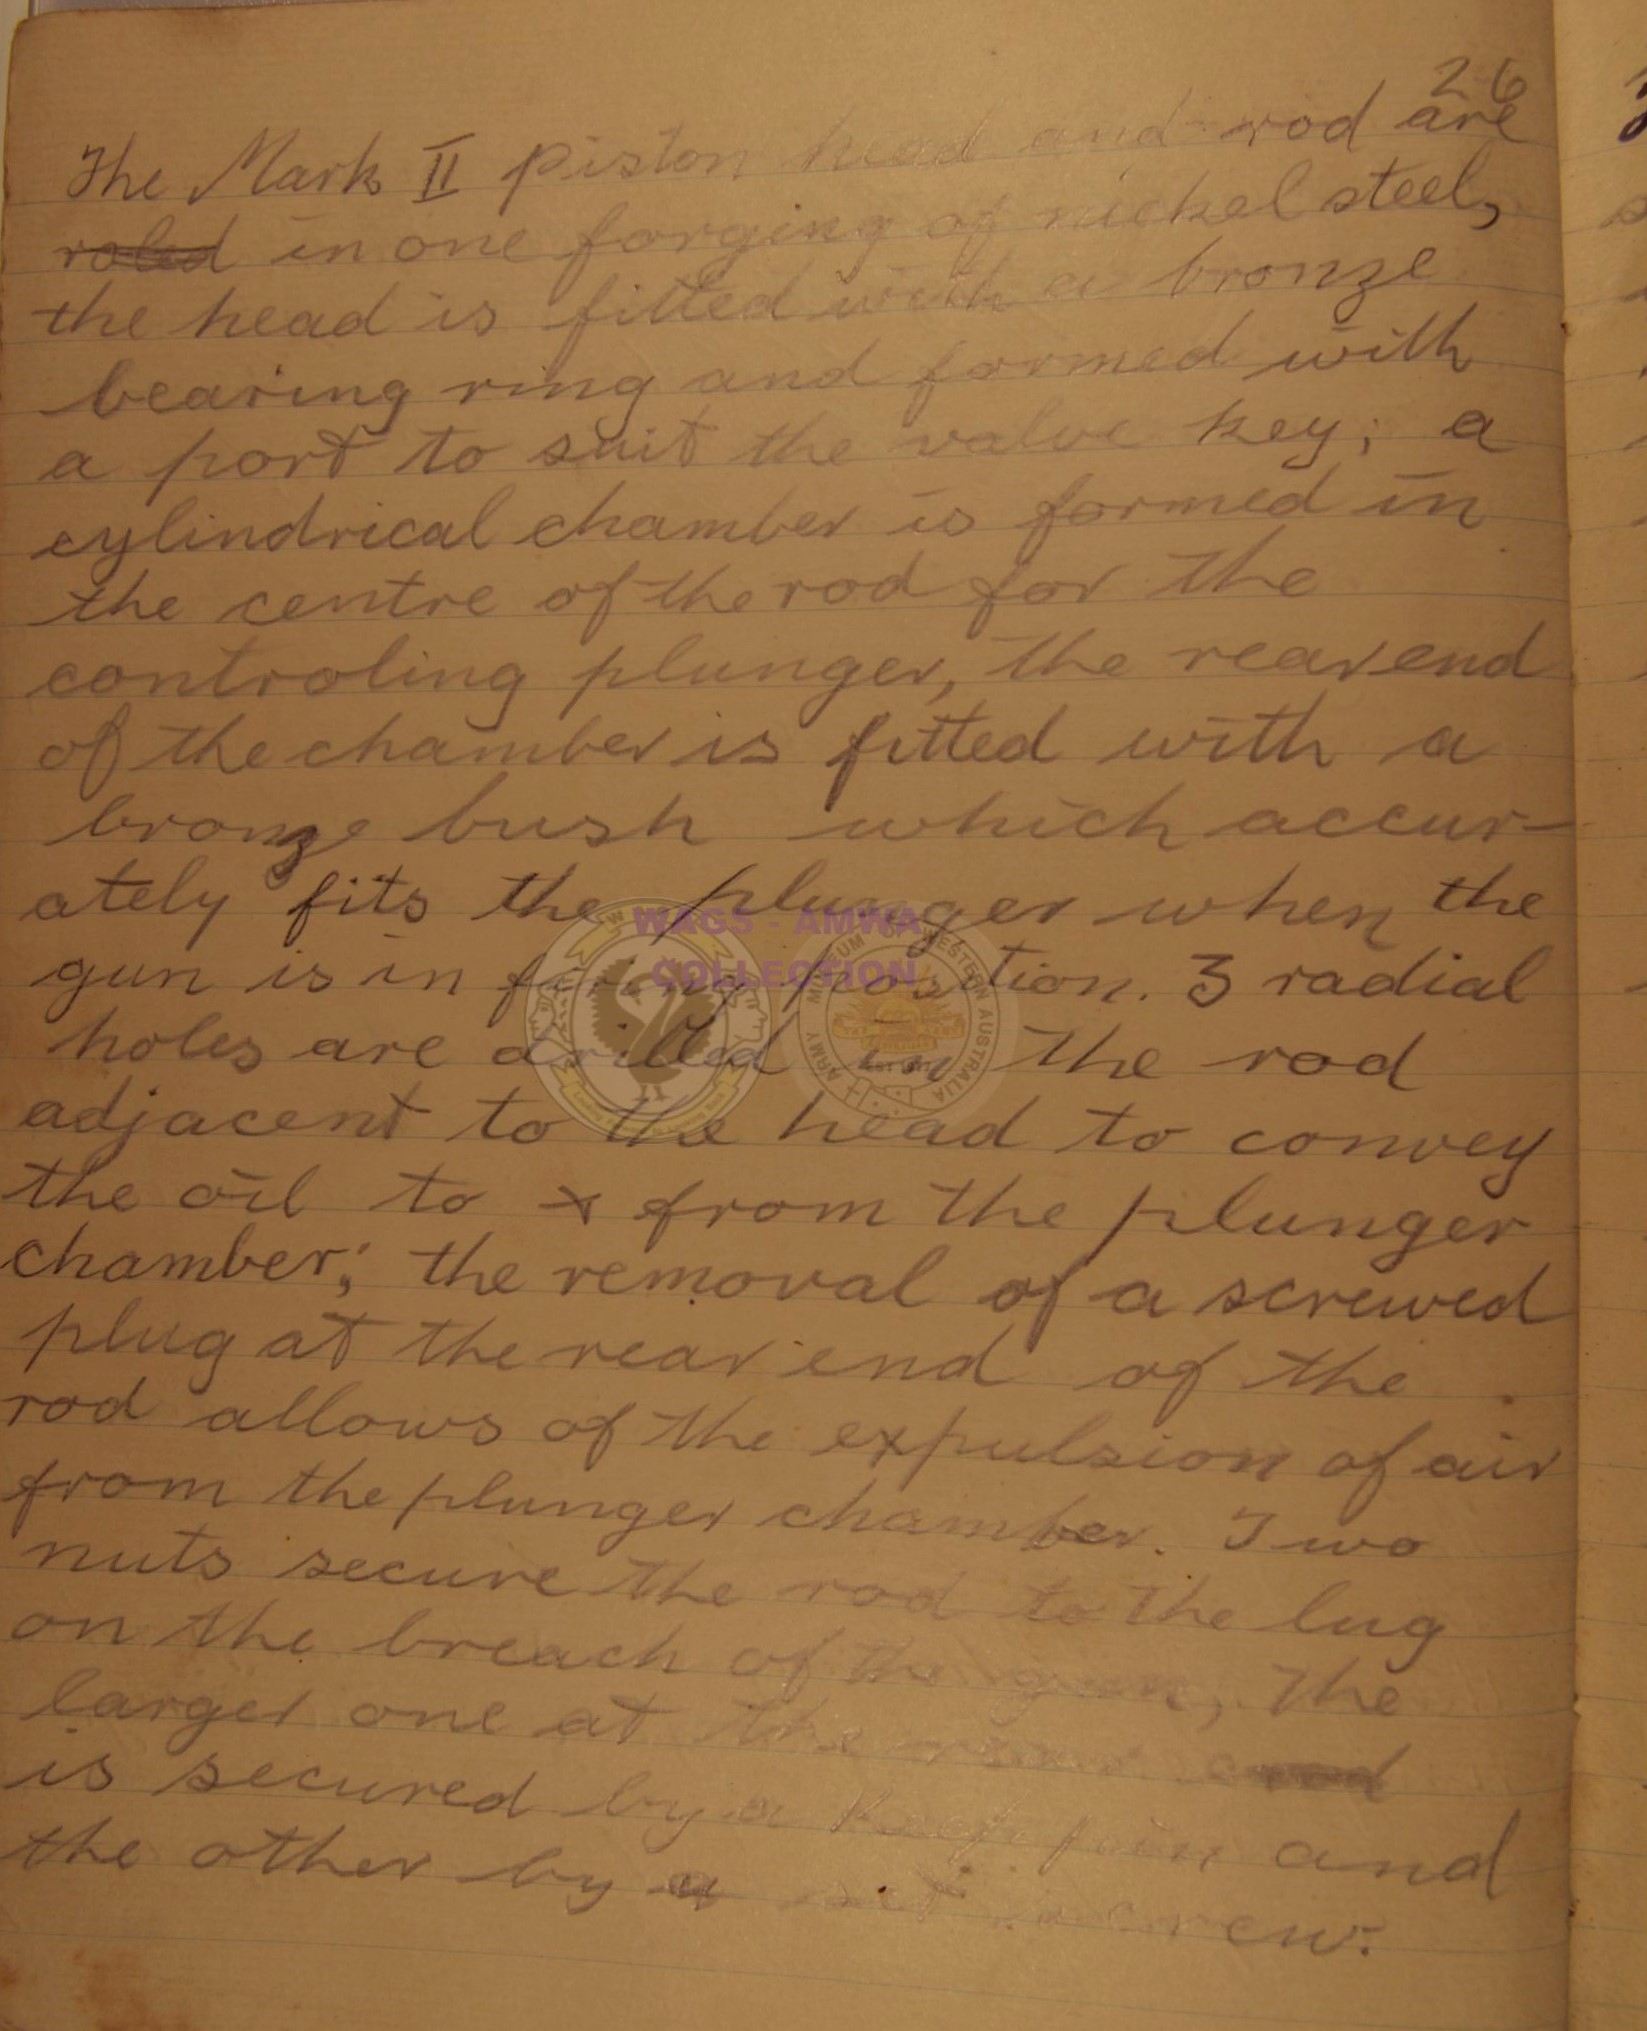 26
The Mark II piston head and rod are
roled in one forging of nickel steel,
the head is fitted with a bronze
bearing ring and formed with
a port to suit the valve key; a
cylindrical chamber is formed in
the centre of the rod for the
controling plunger, the rear end
of the chamber is fitted with a
bronze bush which accur-
ately fits the plunger when the
gun is in firing position. 3 radial
holes are drilled in the rod
adjacent to the head to convey
the oil to & from the plunger
chamber; the removal of a screwed
plug at the rear end of the
rod allows of the expulsion of air
from the plunger chamber. Two
nuts secure the rod to the lug
on the breach of the gun, the
larger one at the rear
is secured by a keep pin and
the other by a set screw.
WAGS - AMWA
COLLECTION
ARMY MUSEUM OF WESTERN AUSTRALIA